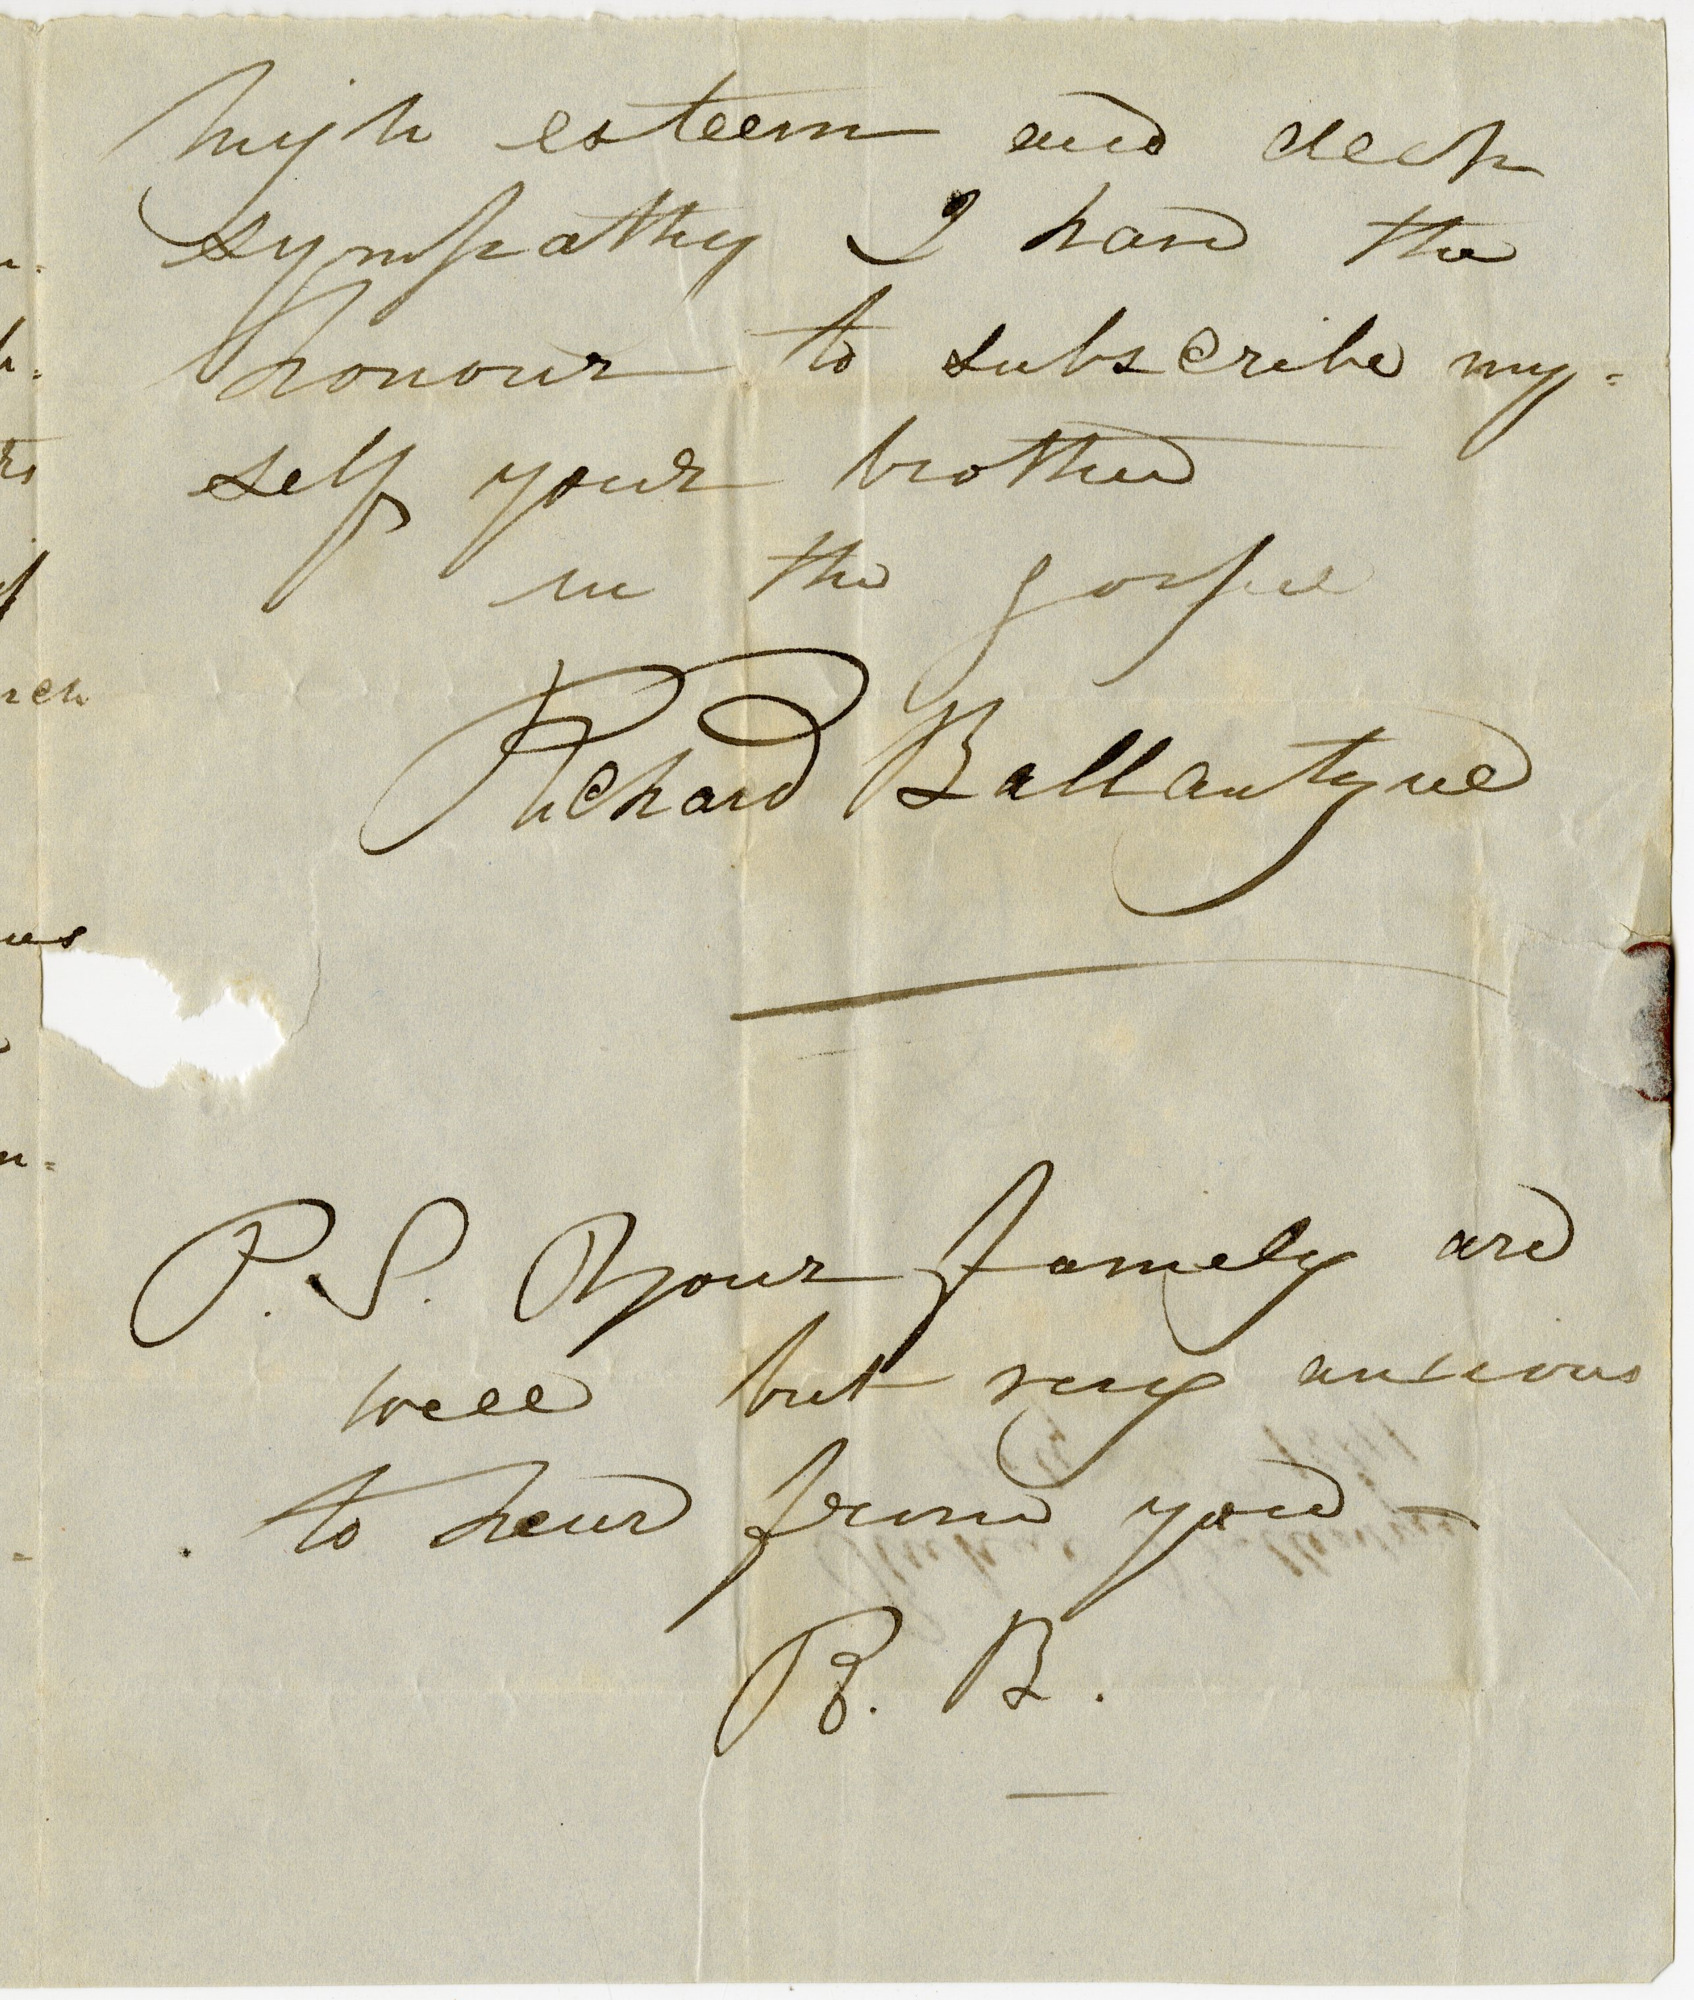 high esteem and deep
sympathy I have the
honour to subscribe my=
self your brother
in the gospel
Richard Ballantyne
P.S. Your family are
well but very anxious
to hear from you—
R. B.